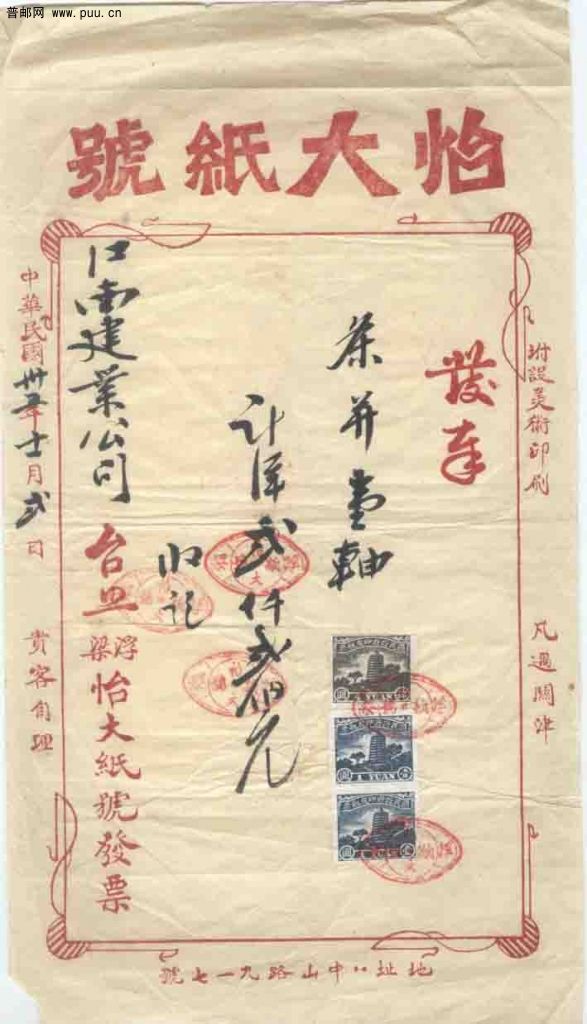 普邮网 www.puu.cn
怡大紙號
附設美術印刷
凡過關津
發奉
茶并壹軸
計洋弍仟弍佰元
收訖
江南建業公司
台照
浮梁
怡大紙號發票
中華民國卅五年十一月弍日
貴客自理
地址:中山路九一七號